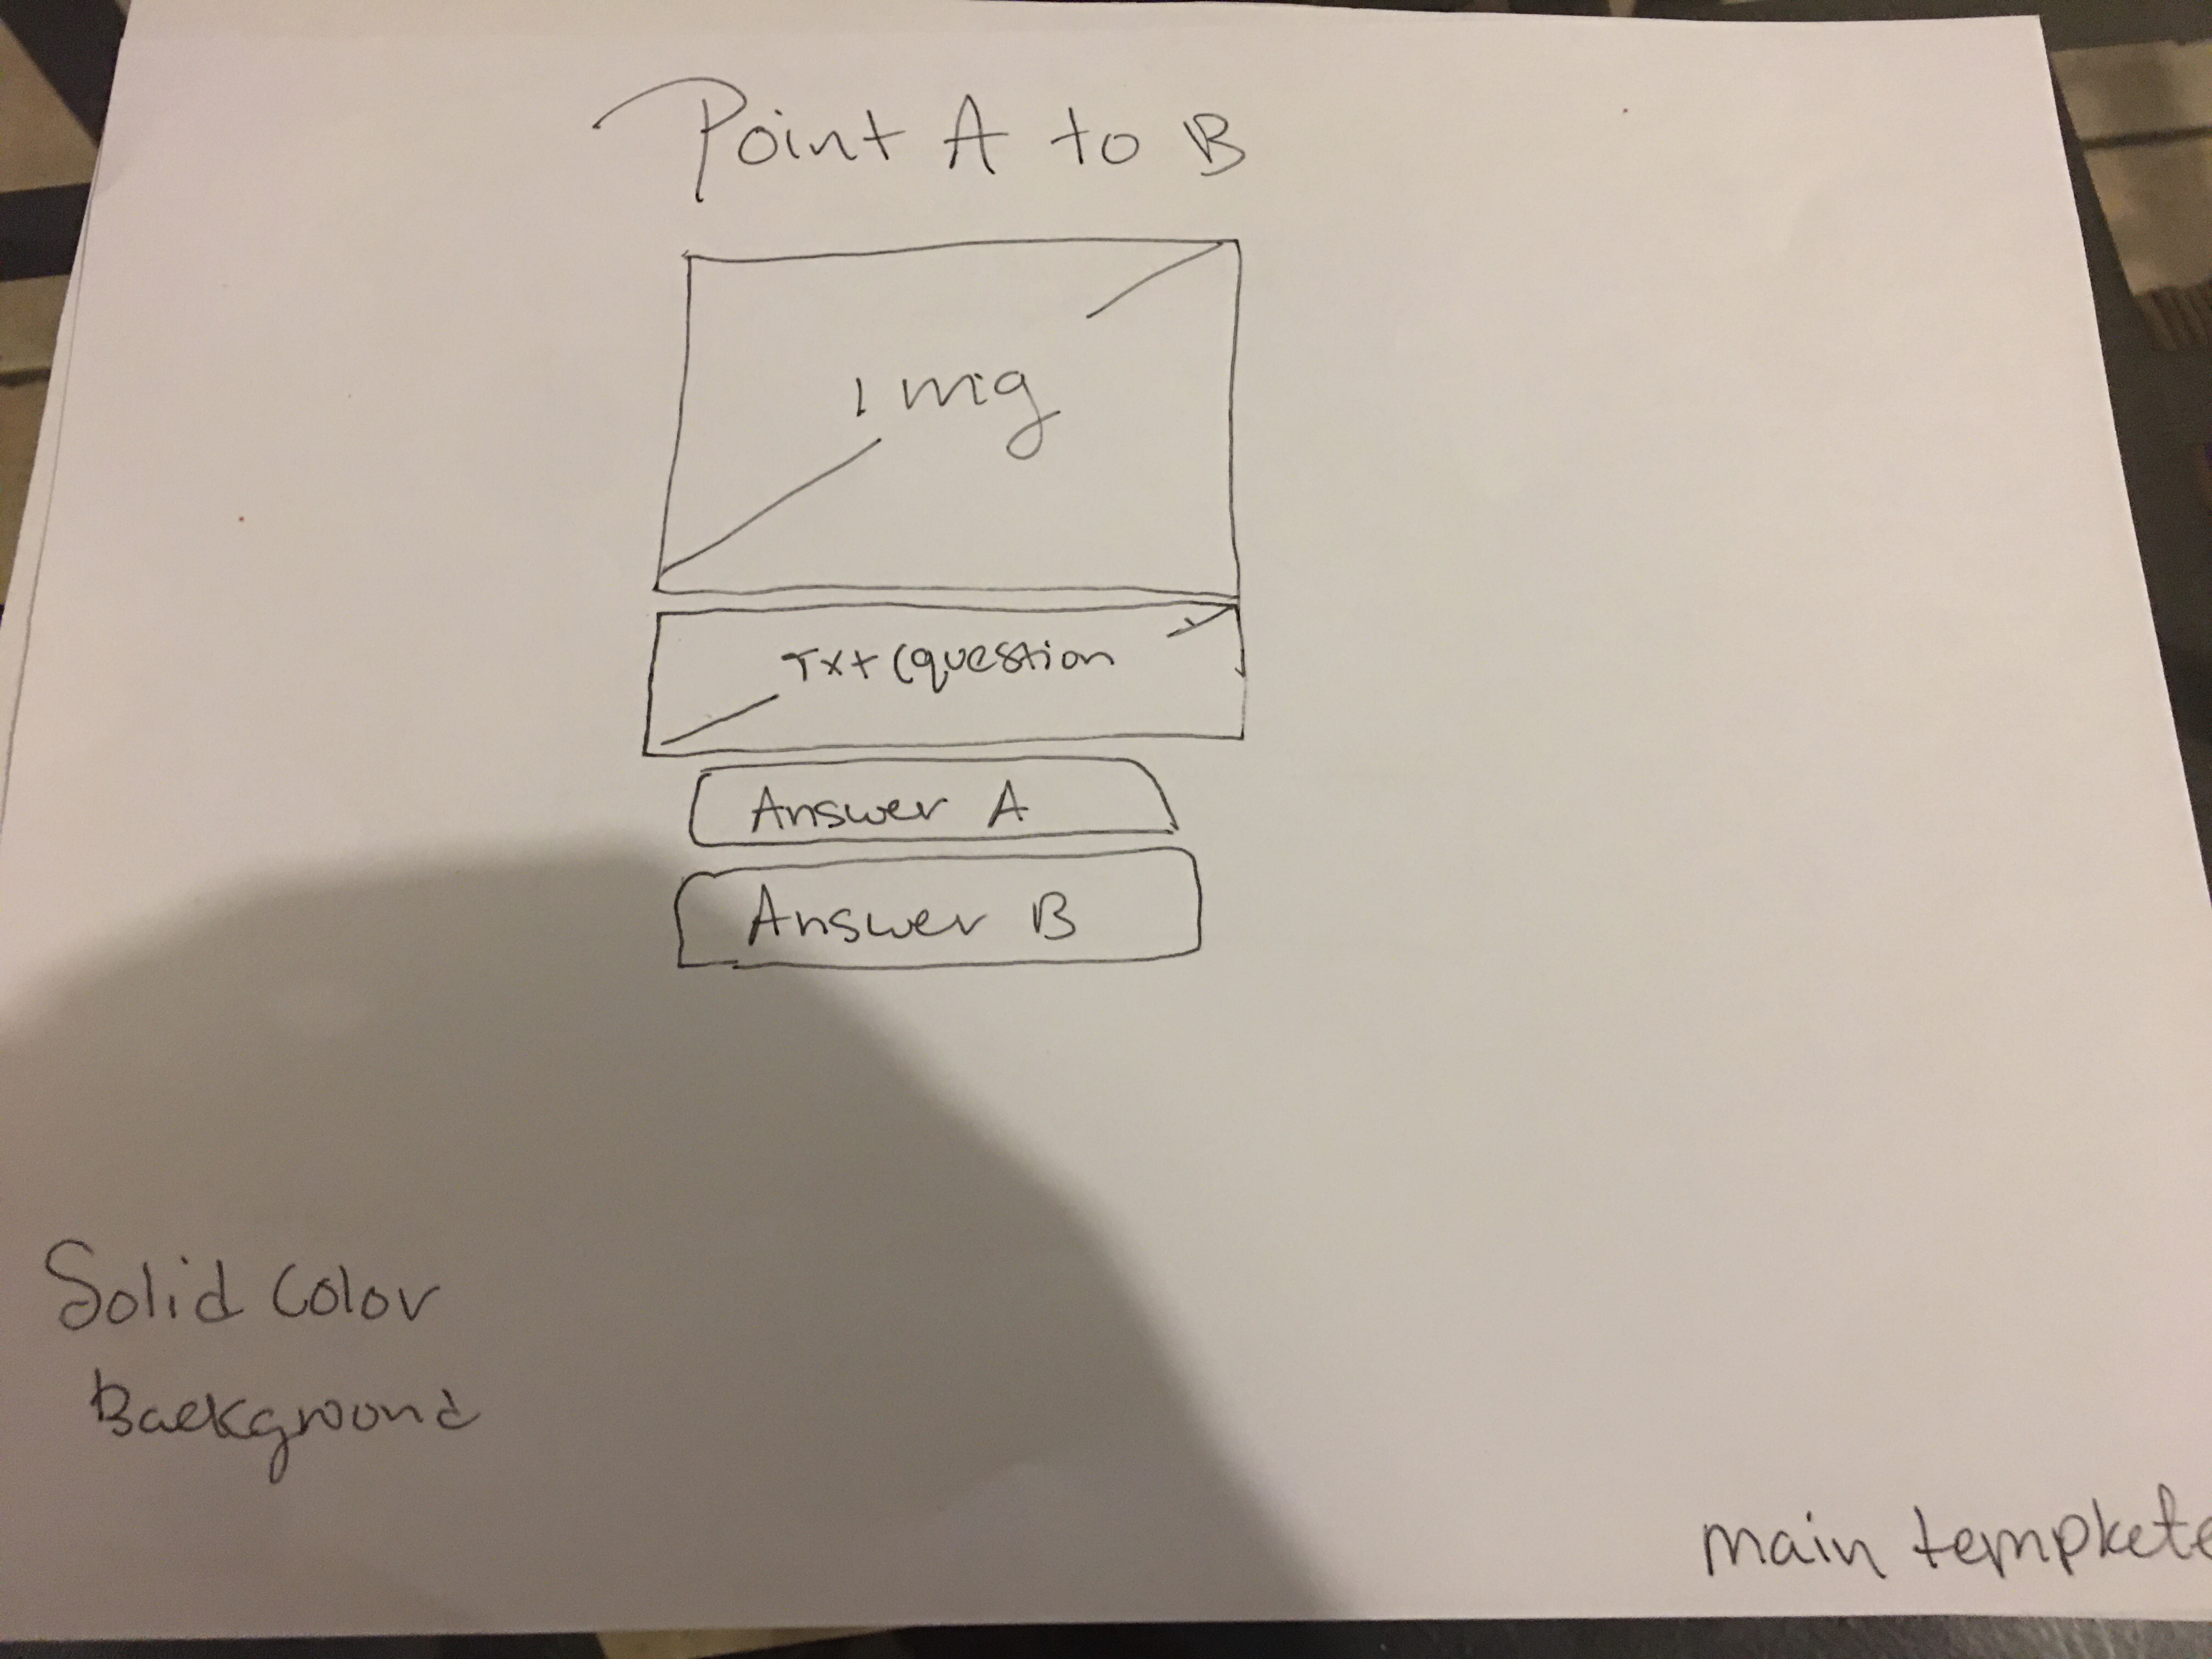 Point A to B
img
Txt (question
Answer A
Answer B
Solid Color
Background
main tempkete